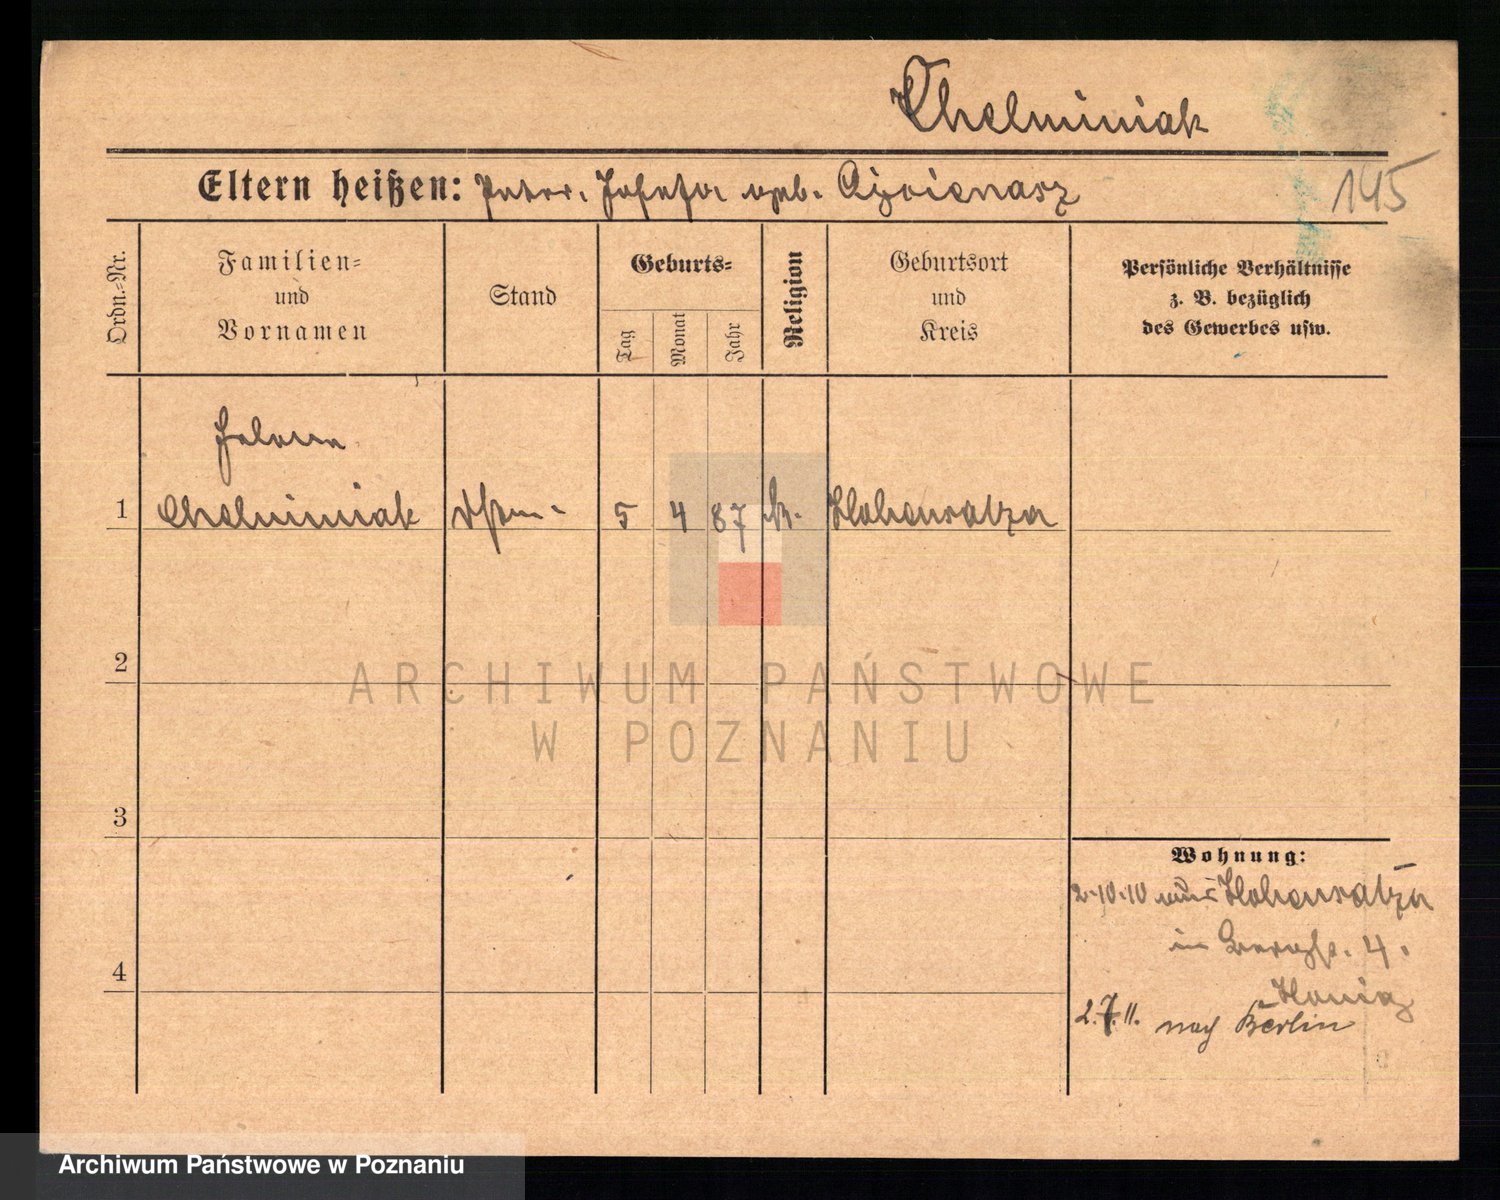 Chelminiak
Eltern heißen: Peter, Josefa geb. 
145
Ordn.-Nr.
Familien-
und
Vornamen
Stand
Geburts-
Tag
Monat
Jahr
Religion
Geburtsort
und
Kreis
Persönliche Verhältnisse
z. B. bezüglich
des Gewerbes usw.
Helene
1 Chelminiak 5 4 87 k. Hohensalza
2
ARCHIWUM PAŃSTWOWE
W POZNANIU
3
Wohnung:
2.10.10 aus Hohensalza
in 4.
4
2.7.11. nach Berlin
Archiwum Państwowe w Poznaniu